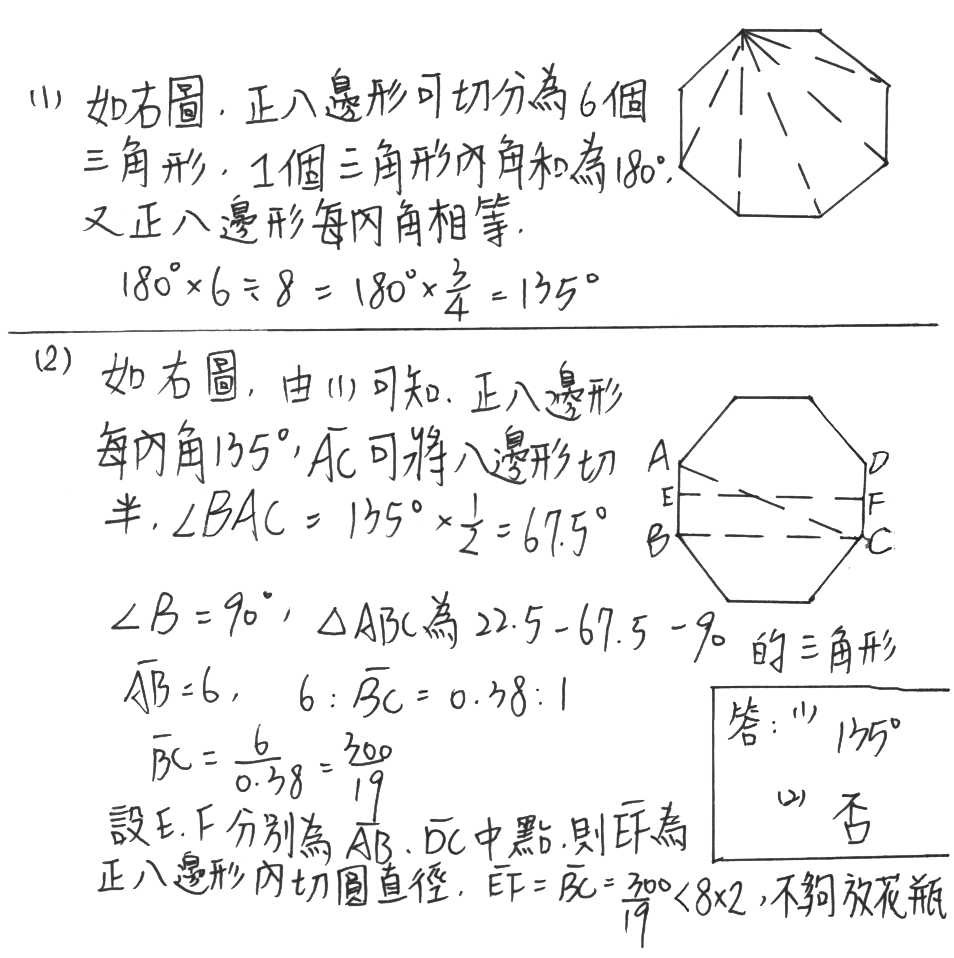 (1) 如右圖，正八邊形可切分為6個
三角形，1個三角形內角和為180°，
又正八邊形每內角相等．
180°×6÷8 = 180°×3/4 = 135°
(2) 如右圖，由(1)可知，正八邊形
每內角135°，A̅C̅可將八邊形切
半，∠BAC = 135°×1/2 = 67.5°
A
D
E
F
B
C
∠B = 90°，△ABC為22.5-67.5-90的三角形
A̅B̅=6， 6 : B̅C̅ = 0.38 : 1
B̅C̅ = 6/0.38 = 300/19
答：(1) 135°
(2) 否
設E、F分別為A̅B̅、D̅C̅中點，則E̅F̅為
正八邊形內切圓直徑，E̅F̅ = B̅C̅ = 300/19 < 8×2，不夠放花瓶